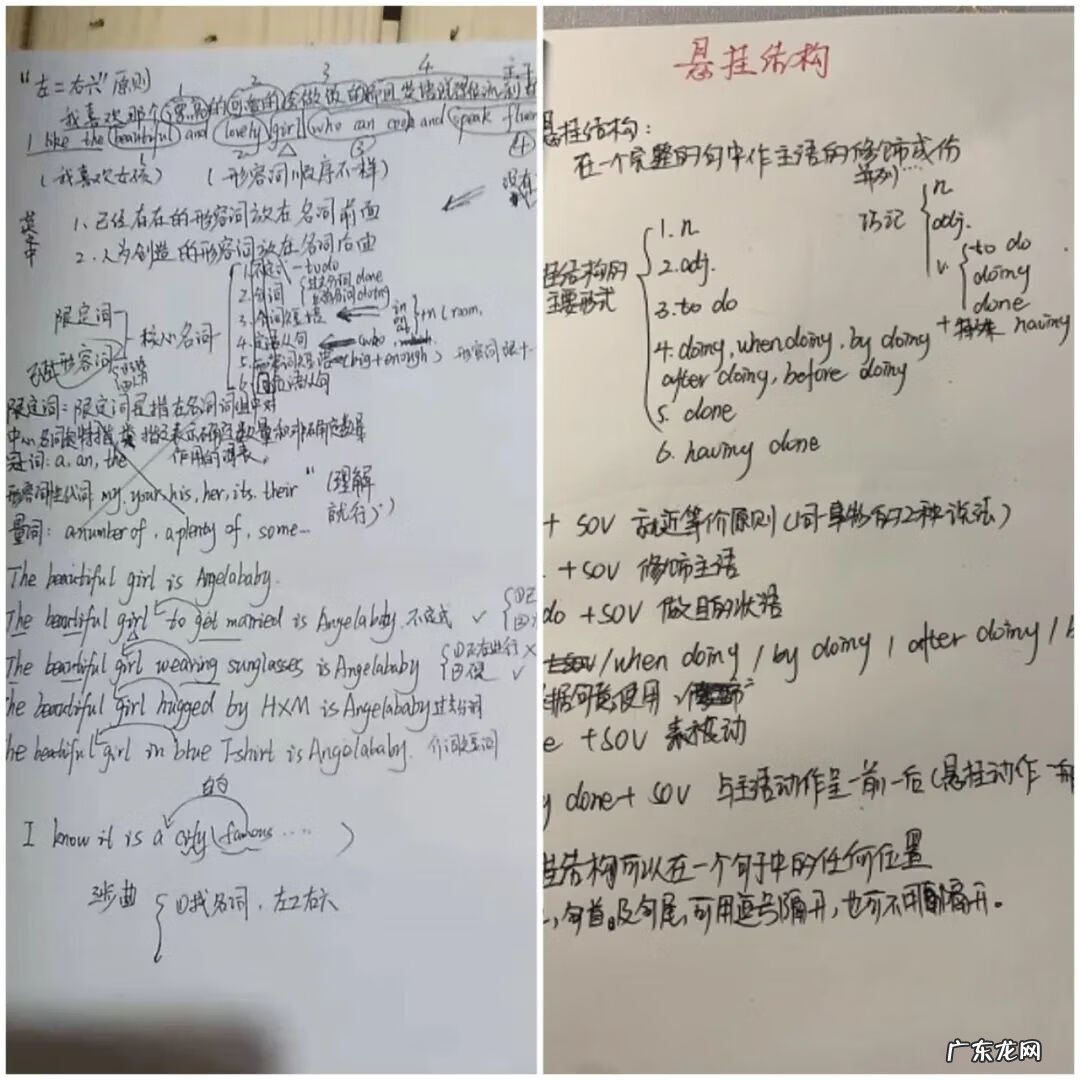 "左二右六"原则
1 2 3 4
我喜欢那个漂亮的可爱的会做饭的
I like the beautiful and lovely girl who can cook and speak
(我喜欢女孩) (形容词顺序不一样)
没有
英文中
1、已经存在的形容词放在名词前面
2、人为创造的形容词放在名词后面
限定词
形容词
核心名词
1.不定式-to do
2.分词 过去分词 done 现在分词 doing
3.介词短语 in on + n (room,
4.定语从句 who
5.形容词短语 (big+enough) 形容词
6.同位语从句
限定词:限定词是指在名词词组中对
中心名词起特指类指及表示确定数量和非确定数量
冠词:a, an, the 作用的词表。
形容词性代词 my, your, his, her, its, their "(理解就行)"
量词: a number of, a plenty of, some...
The beautiful girl is Angelababy.
The beautiful girl to get married is Angelababy. 不定式 ✓
The beautiful girl wearing sunglasses is Angelababy ①正在进行 ×
he beautiful girl hugged by HXM is Angelababy 过去分词
he beautiful girl in blue T-shirt is Angelababy. 介词短词
的
I know it is a city (famous ..... )
①找名词,左二右六
悬挂结构
悬挂结构:
在一个完整的句中作主语的修饰成份
并列...
巧记
n
adj.
v. to do
doing
done
+ 特殊 having
挂结构的主要形式
1. n
2. adj.
3. to do
4. doing, when doing, by doing
after doing, before doing
5. done
6. having done
+ SOV 就近等价原则(同一事物的2种说法)
. +SOV 修饰主语
do +SOV 做目的状语
/when doing / by doing / after doing / b
据句意使用
e +SOV 表被动
g done + SOV 与主语动作呈一前一后(悬挂动作
挂结构可以在一个句子中的任何位置
,句首。及句尾,可用逗号隔开,也可不用隔开。
广东龙网